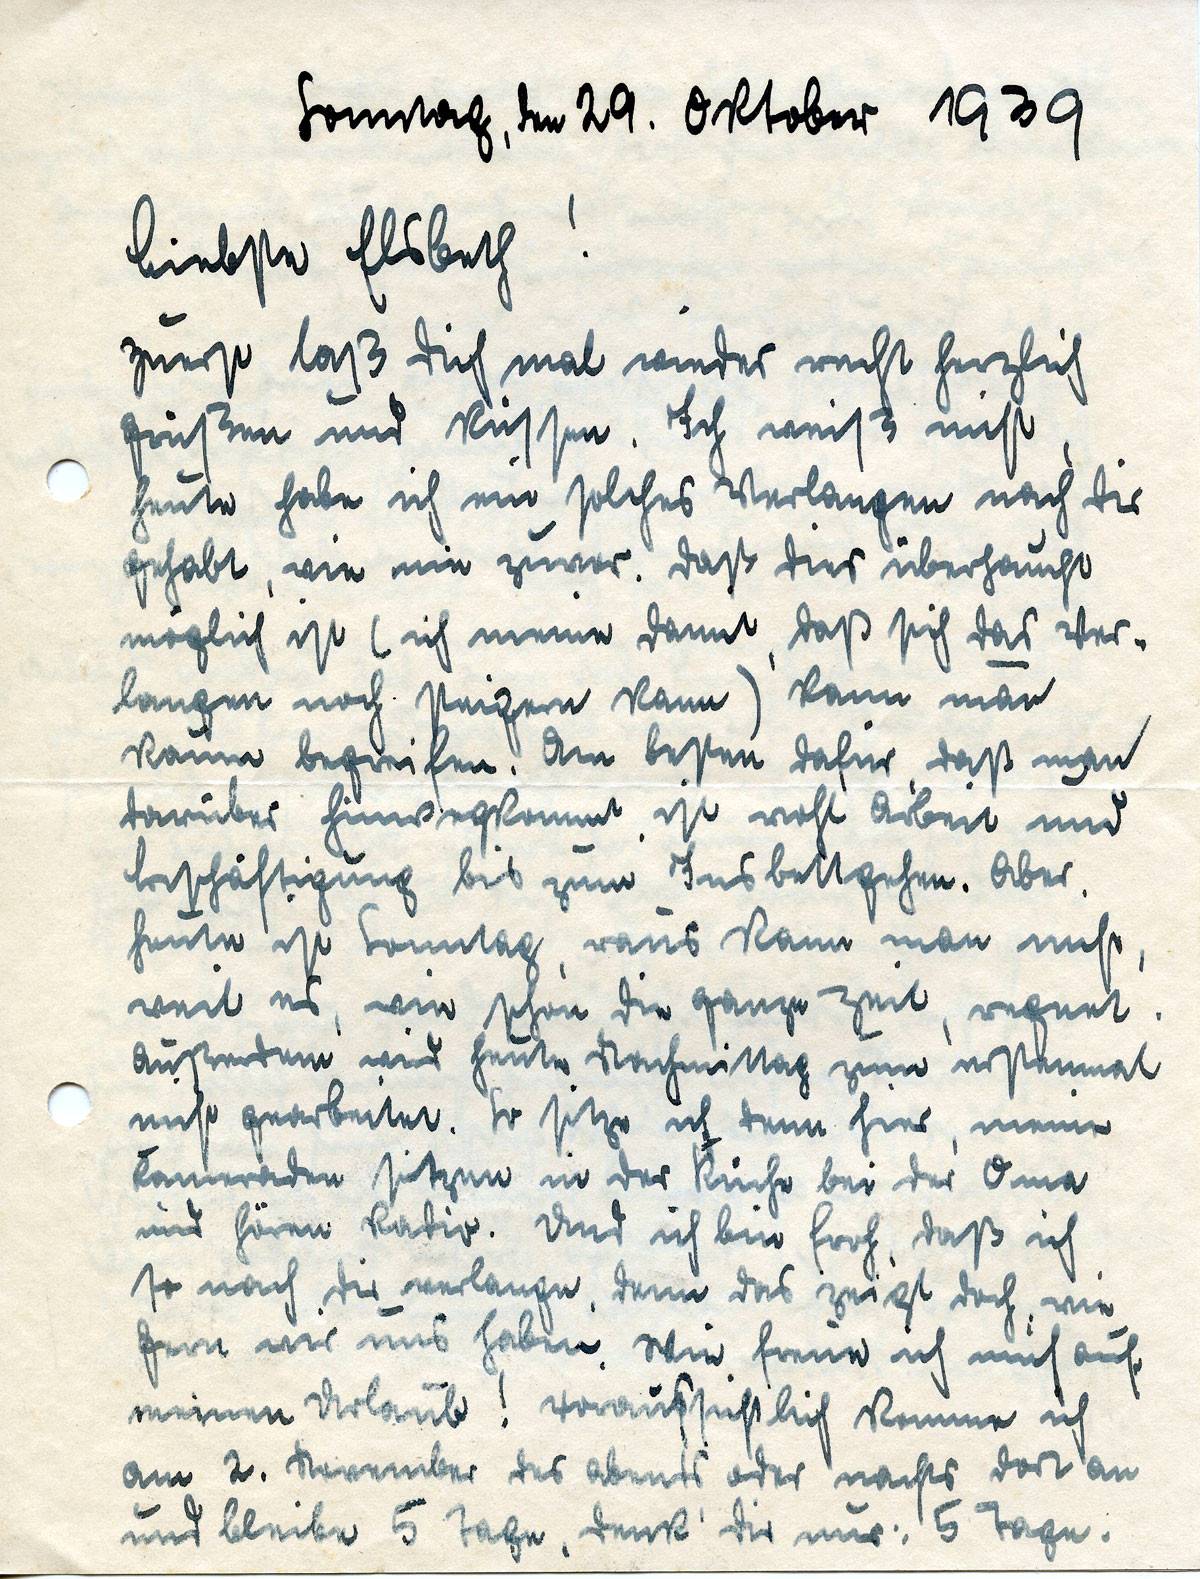 Sonntag, den 29. Oktober 1939
Liebste Elsbeth!
Zuerst laß Dich mal wieder recht herzlich
grüßen und küssen. Ich weiß nicht,
heute habe ich ein solches Verlangen nach Dir
gehabt, wie nie zuvor. Daß dies überhaupt
möglich ist (ich meine damit, daß sich das Ver-
langen noch steigern kann) kann man
kaum begreifen. Am besten dafür, daß man
darüber hinwegkommt, ist wohl Arbeit und
Beschäftigung bis zum Insbettgehen. Aber
heute ist Sonntag, raus kann man nicht,
weil es, wie schon die ganze Zeit, regnet.
Außerdem wird heute Nachmittag zum erstenmal
nicht gearbeitet. So sitze ich denn hier, meine
Kameraden sitzen in der Küche bei der Oma
und hören Radio. Und ich bin froh, daß ich
so nach Dir verlange, denn das zeigt doch, wie
gern wir uns haben. Wie freue ich mich auf
meinen Urlaub! Voraussichtlich komme ich
am 2. November des abends oder nachts dort an
und bleibe 5 Tage, denk' Dir nur: 5 Tage.